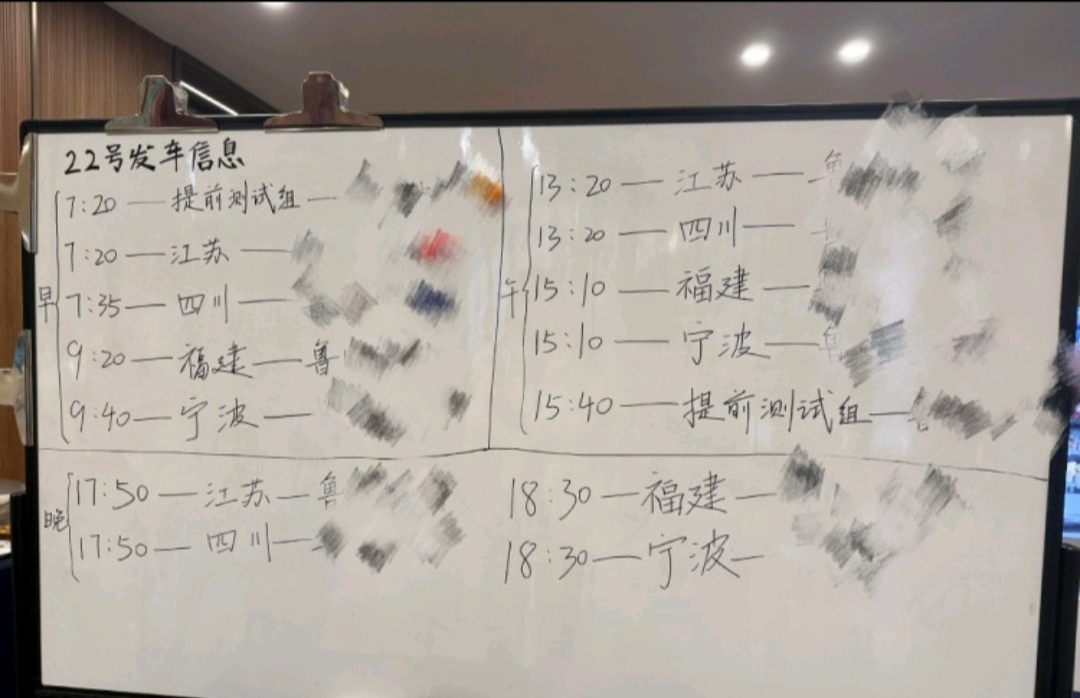 22号发车信息
早
7:20 — 提前测试组 —
7:20 — 江苏 —
7:35 — 四川 —
9:20 — 福建 — 鲁
9:40 — 宁波 —
午
13:20 — 江苏 — 鲁
13:20 — 四川 —
15:10 — 福建 —
15:10 — 宁波 — 鲁
15:40 — 提前测试组 —
晚
17:50 — 江苏 — 鲁
17:50 — 四川 —
18:30 — 福建 —
18:30 — 宁波 —